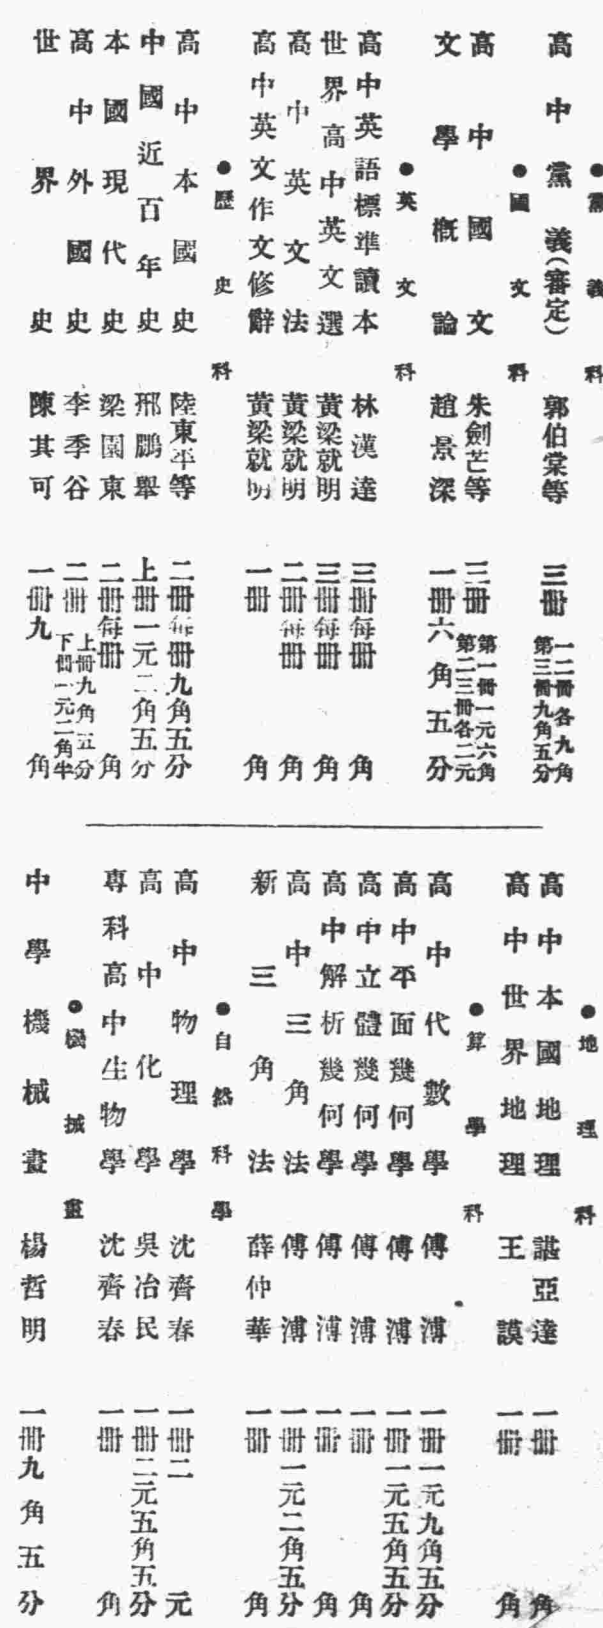 ●黨義科
高中黨義(審定) 郭伯棠等 三冊 一二冊各九角 第三冊九角五分
●國文科
高中國文 朱劍芒等 三冊 第一冊一元六角 第二三冊各二元
文學概論 趙景深 一冊六角五分
●英文科
高中英語標準讀本 林漢達 三冊每冊 角
世界高中英文選 黃梁就明 三冊每冊 角
高中英文法 黃梁就明 二冊每冊 角
高中英文作文修辭 黃梁就明 一冊 角
●歷史科
高中本國史 陸東平等 二冊每冊九角五分
中國近百年史 邢鵬舉 上冊一元二角五分
本國現代史 梁園東 二冊每冊 角
高中外國史 李季谷 二冊 上冊九角五分 下冊一元二角半
世界史 陳其可 一冊九角
●地理科
高中本國地理 諶亞達 一冊 角
高中世界地理 王謨 一冊 角
●算學科
高中代數學 傅溥 一冊一元九角五分
高中平面幾何學 傅溥 一冊一元五角五分
高中立體幾何學 傅溥 一冊 角
高中解析幾何學 傅溥 一冊 角
高中三角法 傅溥 一冊一元二角五分
新三角法 薛仲華 一冊 角
●自然科學
高中物理學 沈齊春 一冊二元
高中化學 吳冶民 一冊二元五角五分
專科高中生物學 沈齊春 一冊 角
●機械畫
中學機械畫 楊哲明 一冊九角五分